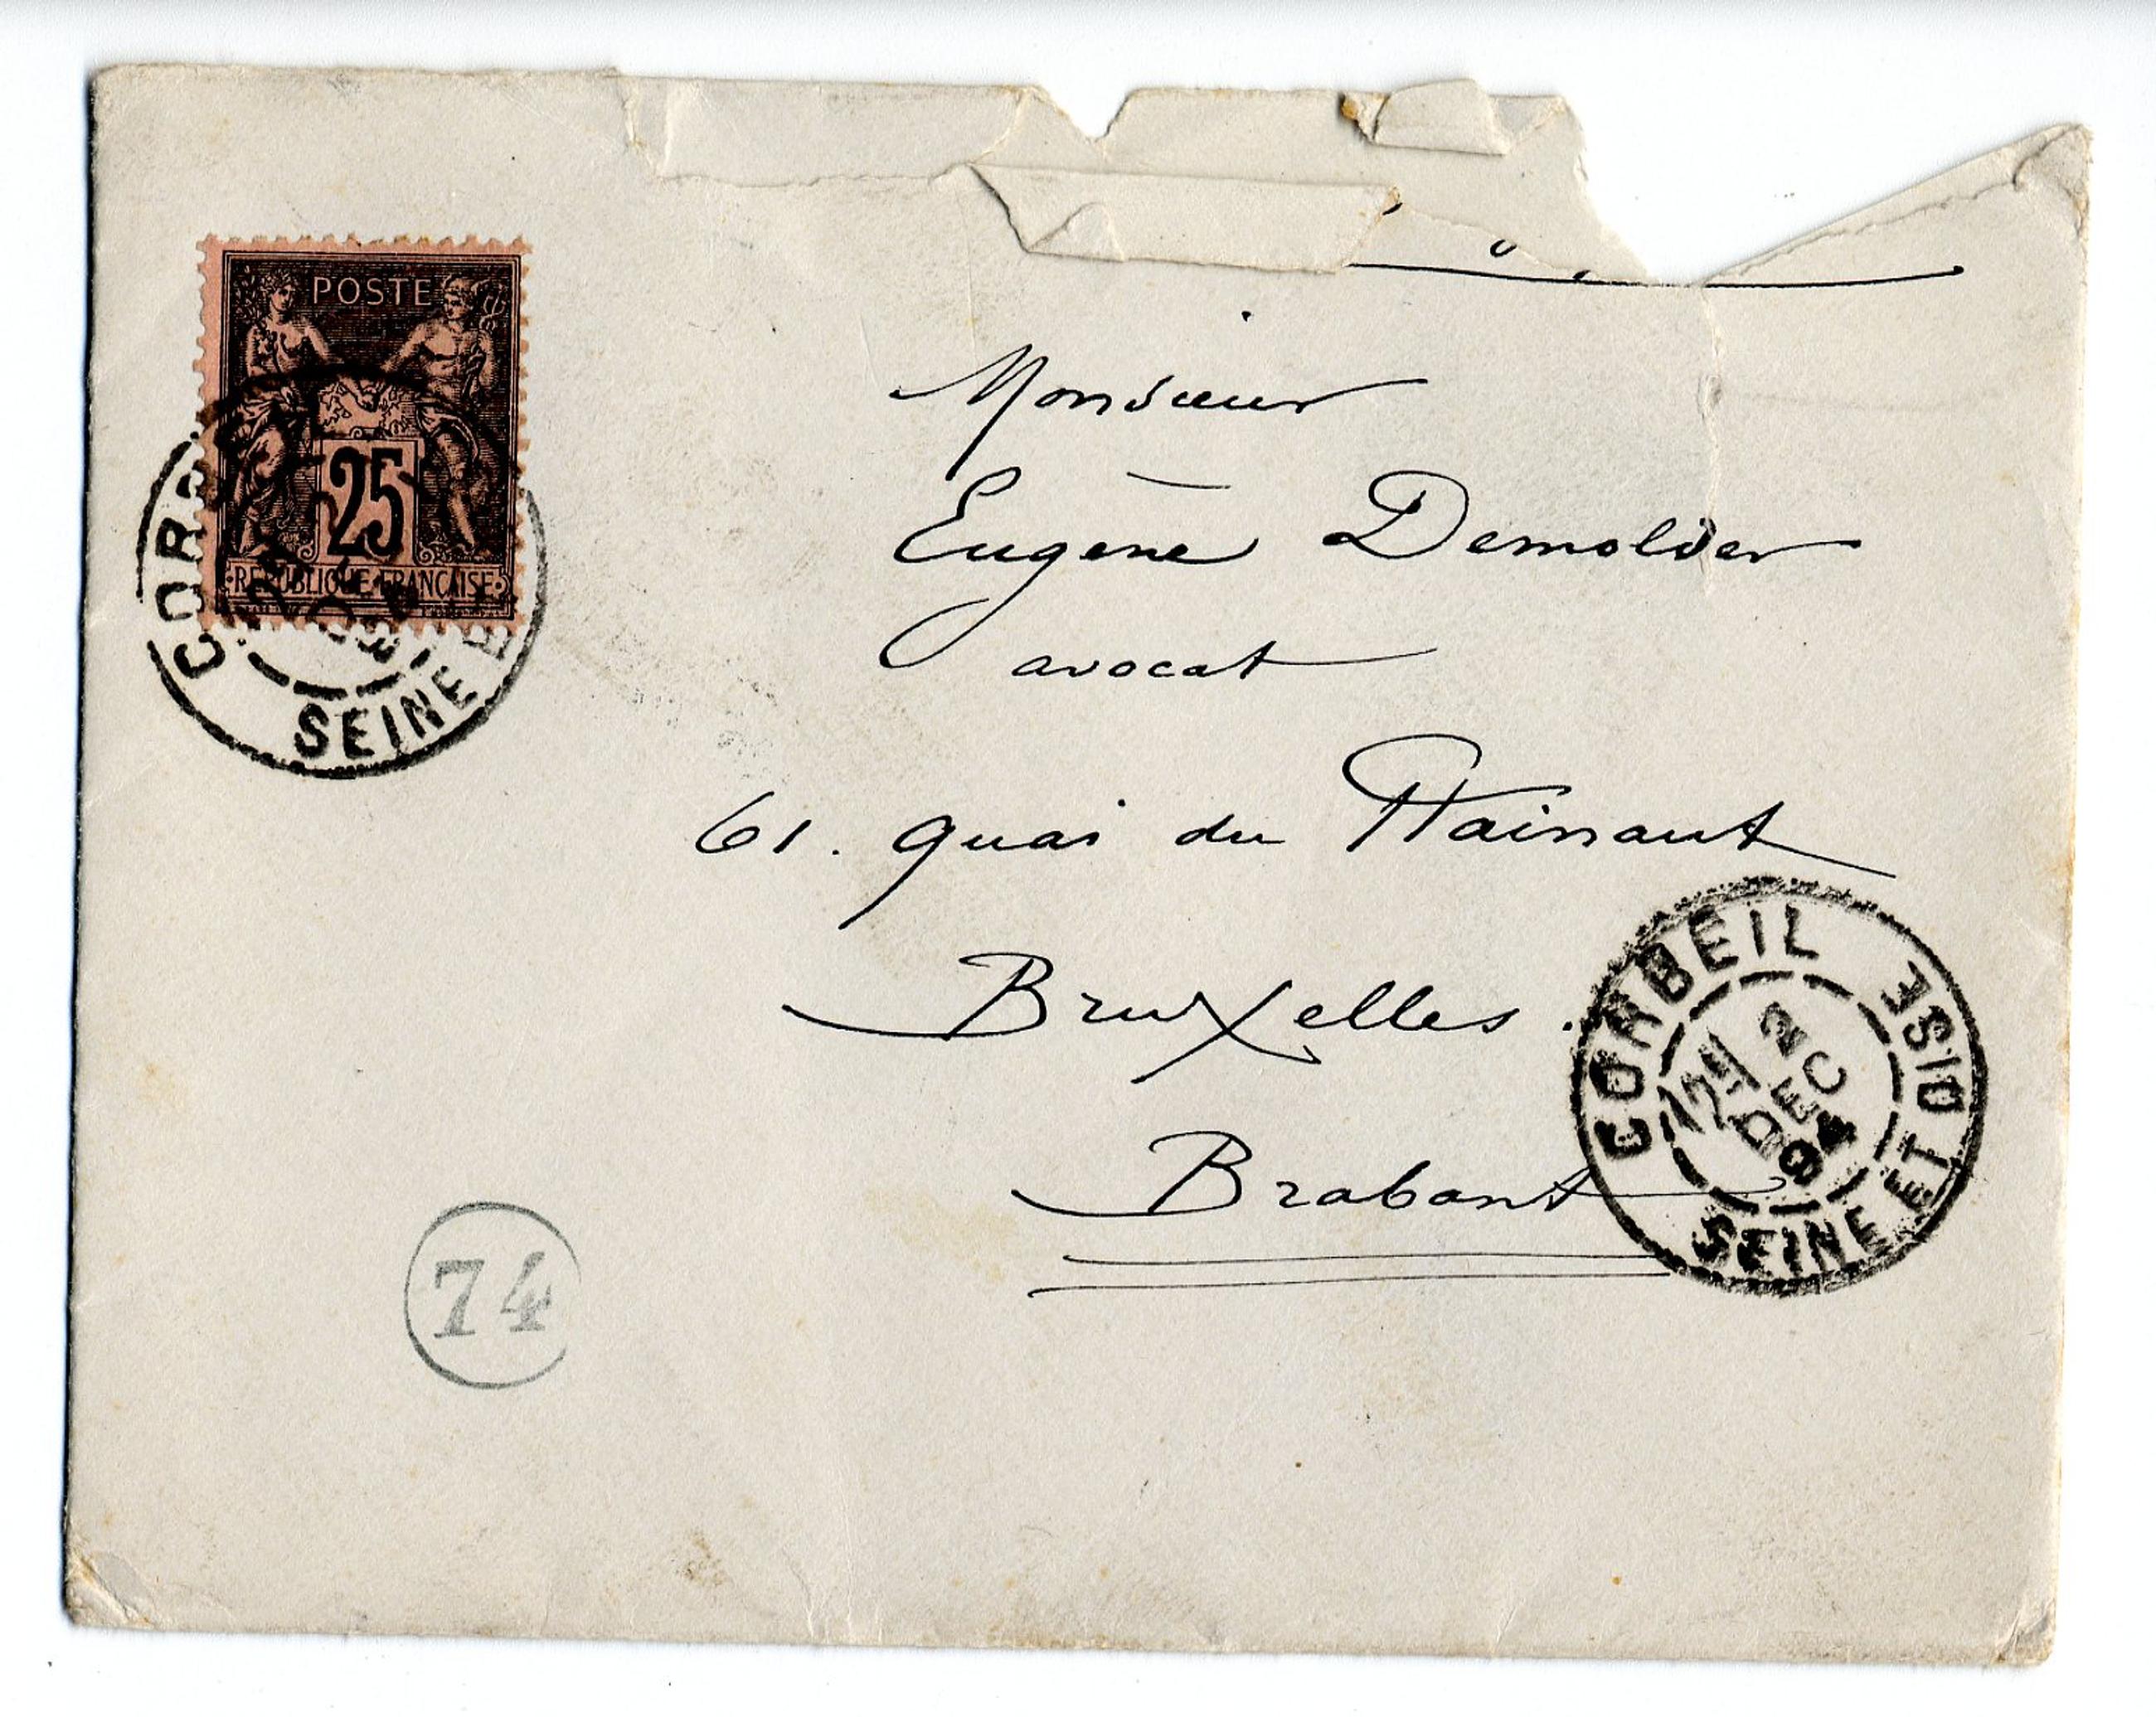 POSTE
25
REPUBLIQUE FRANCAISE
Monsieur
Eugène Demolder
avocat
61. quai du Hainaut
Bruxelles.
Brabant
CORBEIL
12H
2
DEC
94
SEINE ET OISE
CORB
SEINE E
74